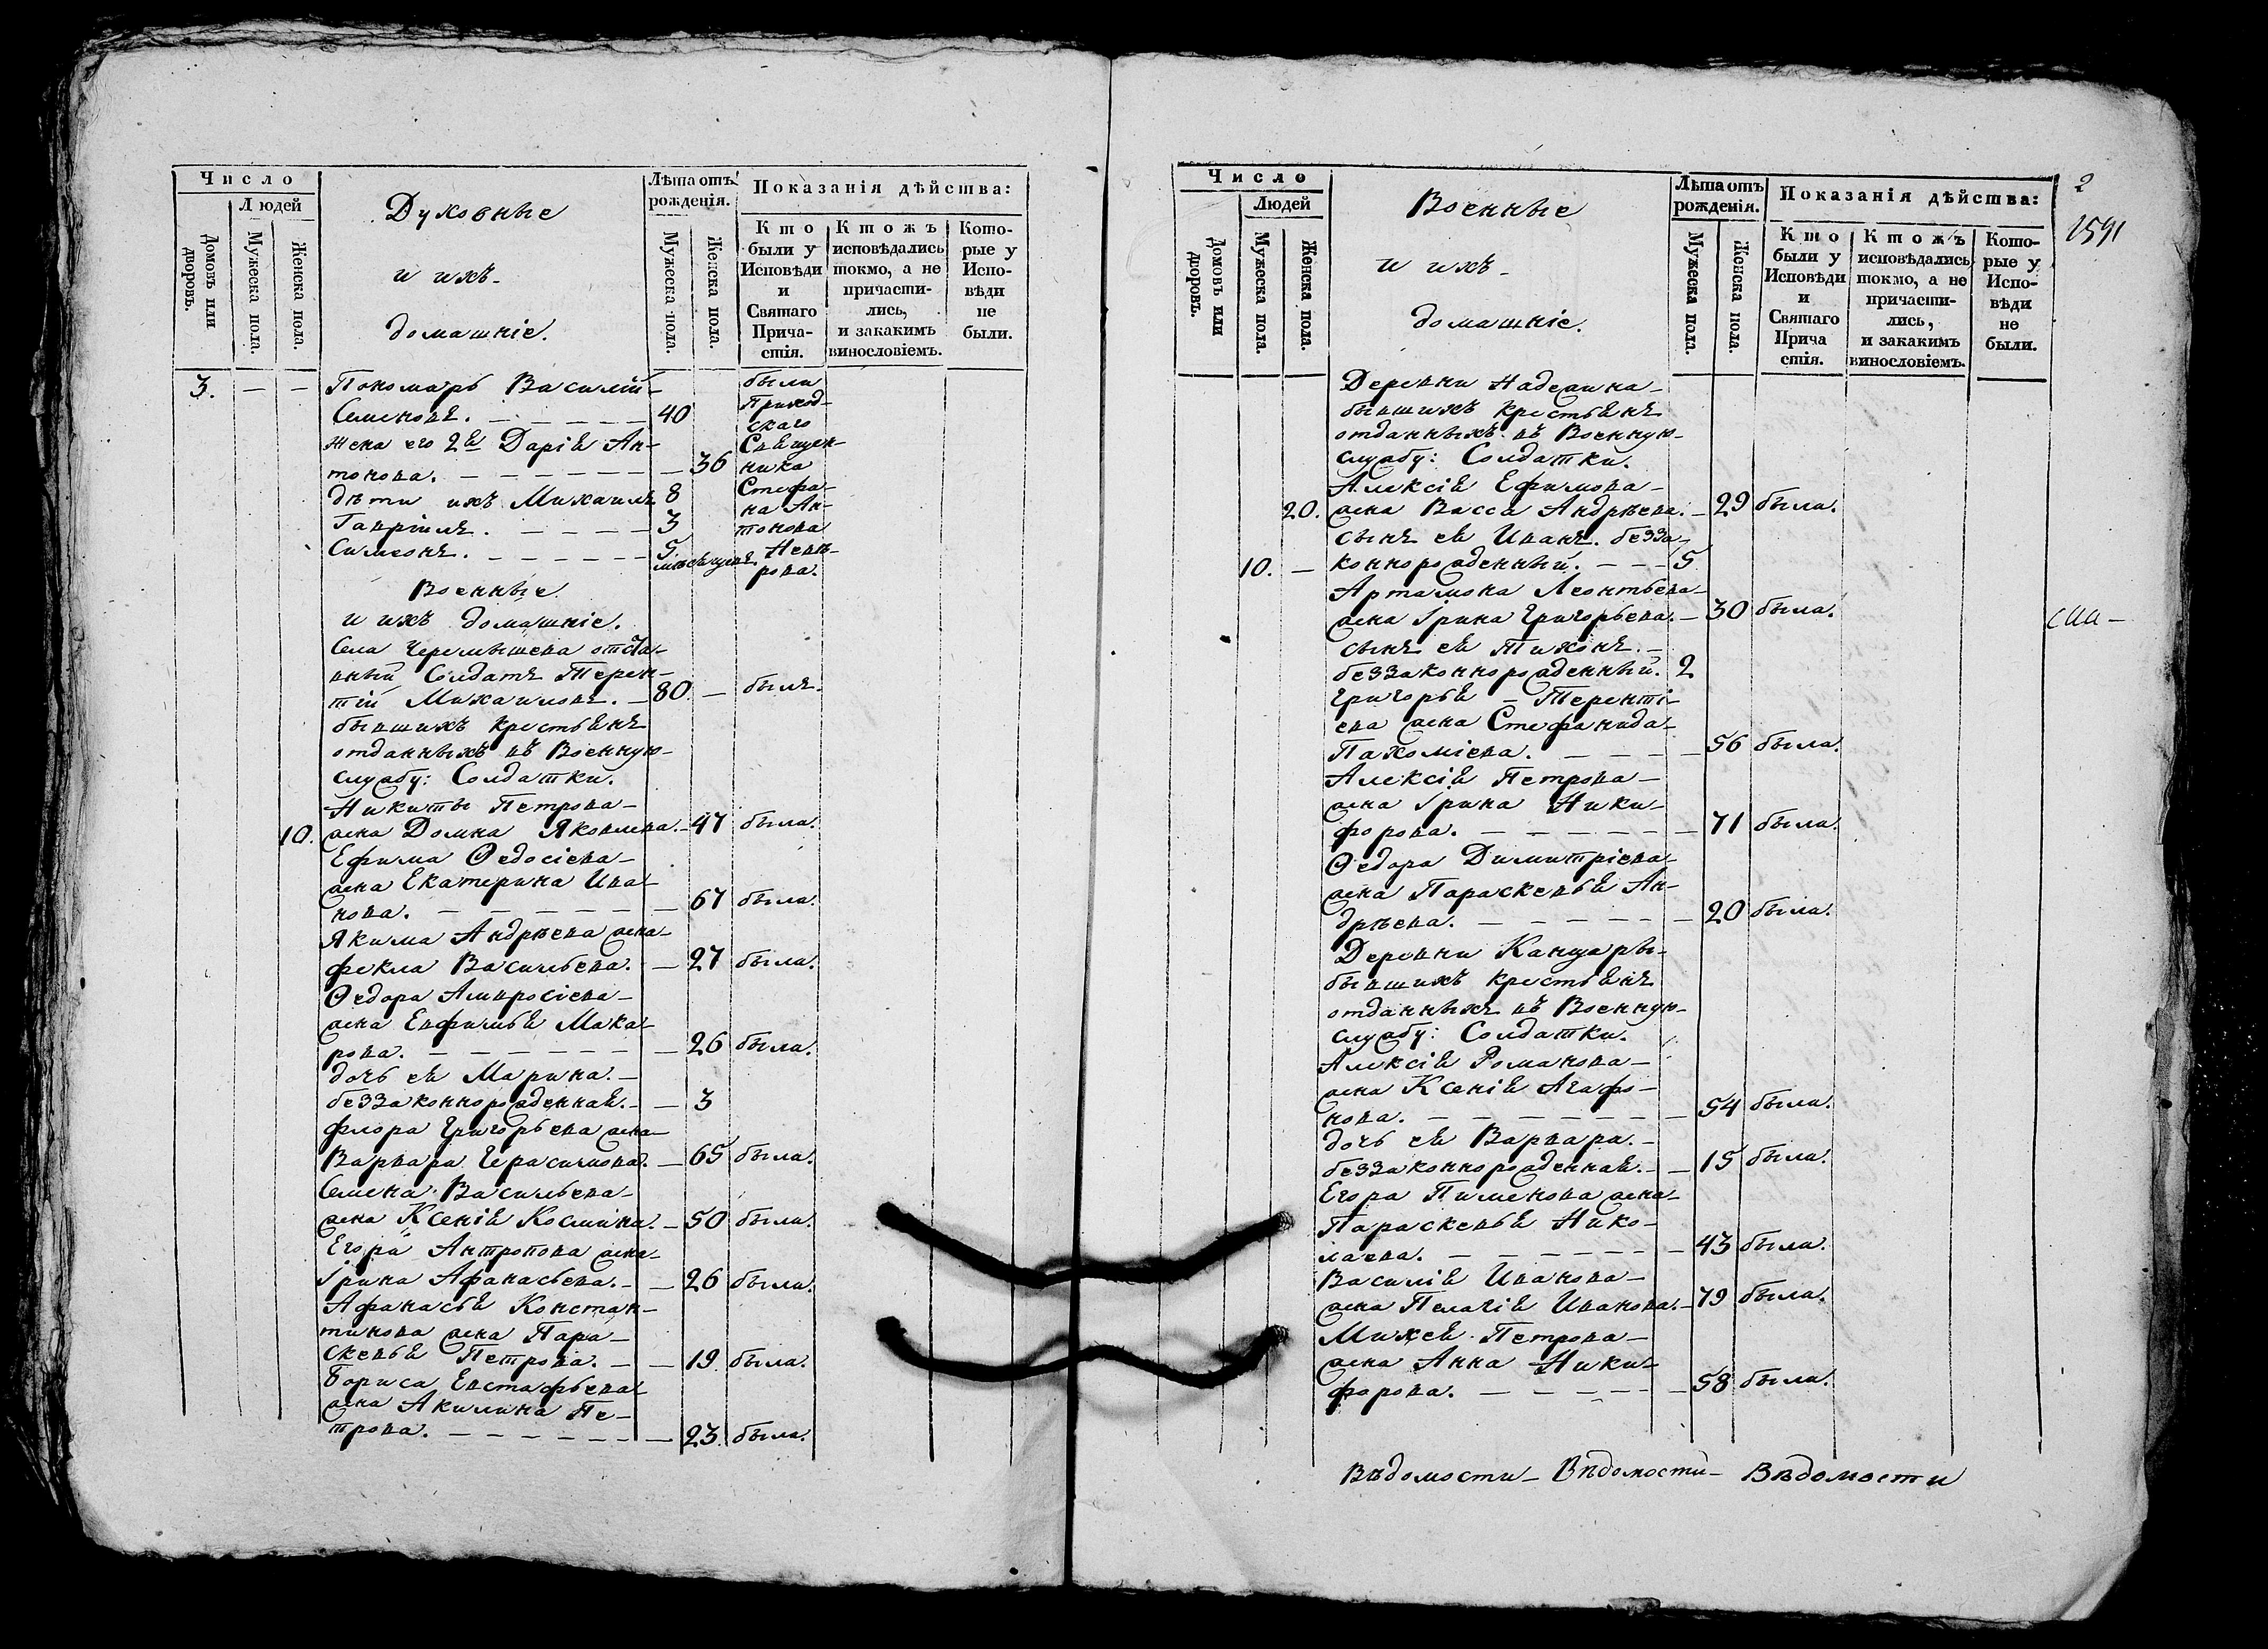 Число
Людей
Домовъ или дворовъ.
Мужеска пола.
Женска пола.
Духовные
и ихъ
домашніе.
Лѣта отъ рожденія.
Мужеска пола.
Женска пола.
Показанія дѣйства:
Кто были у Исповѣди и Святаго Прича- стія.
Ктожъ исповѣдались токмо, а не причасти- лись, и закакимъ винословіемъ.
Кото- рые у Испо- вѣди не были.
3. — — Пономарь Василій были
Семеновъ. — 40 Приход-
скаго
жена его 2я Дарія Ан- Священ-
тонова. — 36 ника
дѣти ихъ Михаилъ 8 Стефа-
Гавріилъ. — 3 на Ан-
тонова
Симеонъ. — 5 мѣсяцевъ Невѣ-
рова.
Военные
и ихъ домашніе.
Села Черемышева отста-
вный Солдатъ Терен-
тій Михаиловъ. — 80. — былъ.
бывшихъ крестьянъ
отданныхъ въ Военную
службу: Солдатки.
Никиты Петрова
10. жена Домна Яковлева. — 47 была.
Ефима Ѳедосіева
жена Екатерина Ива-
нова. — 67 была.
Якима Андрѣева жена
Фекла Васильева. — 27 была.
Ѳедора Амвросіева
жена Евфимья Мака-
рова. — 26 была.
дочь ея Марина.
беззаконнорожденная. — 3
Флора Григорьева жена
Варвара Герасимова. — 65 была.
Семена Васильева
жена Ксенія Космина. — 50 была.
Егора Антропова жена
Ірина Афанасьева. — 26 была.
Афанасья Констан-
тинова жена Пара-
скевья Петрова. — 19. была.
Бориса Евстафьева
жена Акилина Пе-
трова. — 23. была.
Число
Людей
Домовъ или дворовъ.
Мужеска пола.
Женска пола.
Военные
и ихъ
домашніе.
Лѣта отъ рожденія.
Мужеска пола.
Женска пола.
Показанія дѣйства:
Кто были у Исповѣди и Святаго Прича стія.
Ктожъ исповѣдались токмо, а не причасти- лись, и закакимъ винословіемъ.
Кото- рые у Испо- вѣди не были.
2
1591
Деревни Наделина
бывшихъ крестьянъ
отданныхъ въ Военную
службу: Солдатки.
Алексія Ефимова
20. жена Васса Андрѣева. — 29 была.
сынъ ея Иванъ. безза-
10. — коннорожденный. — 5
Артамона Леонтьева
жена Ірина Григорьева. — 30 была.
сынъ ея Тихонъ.
беззаконнорожденный. 2
Григорья Теренті-
ева жена Стефанида
Пахоміева. — 56 была.
Алексія Петрова
жена Ірина Ники-
форова. — 71 была.
Ѳедора Димитріева
жена Параскевья Ан-
дрѣева. — 20 была.
Деревни Канцары
бывшихъ крестьянъ
отданныхъ въ Военную
службу: Солдатки.
Алексія Романова
жена Ксенія Агафо-
нова. — 54 была.
дочь ея Варвара.
беззаконнорожденная. — 15 была.
Егора Пименова жена
Параскевья Нико-
лаева. — 43 была.
Василія Иванова
жена Пелагія Иванова. — 79 была.
Михея Петрова
жена Анна Ники-
форова. — 58 была.
Вѣдомости Вѣдомости Вѣдомости